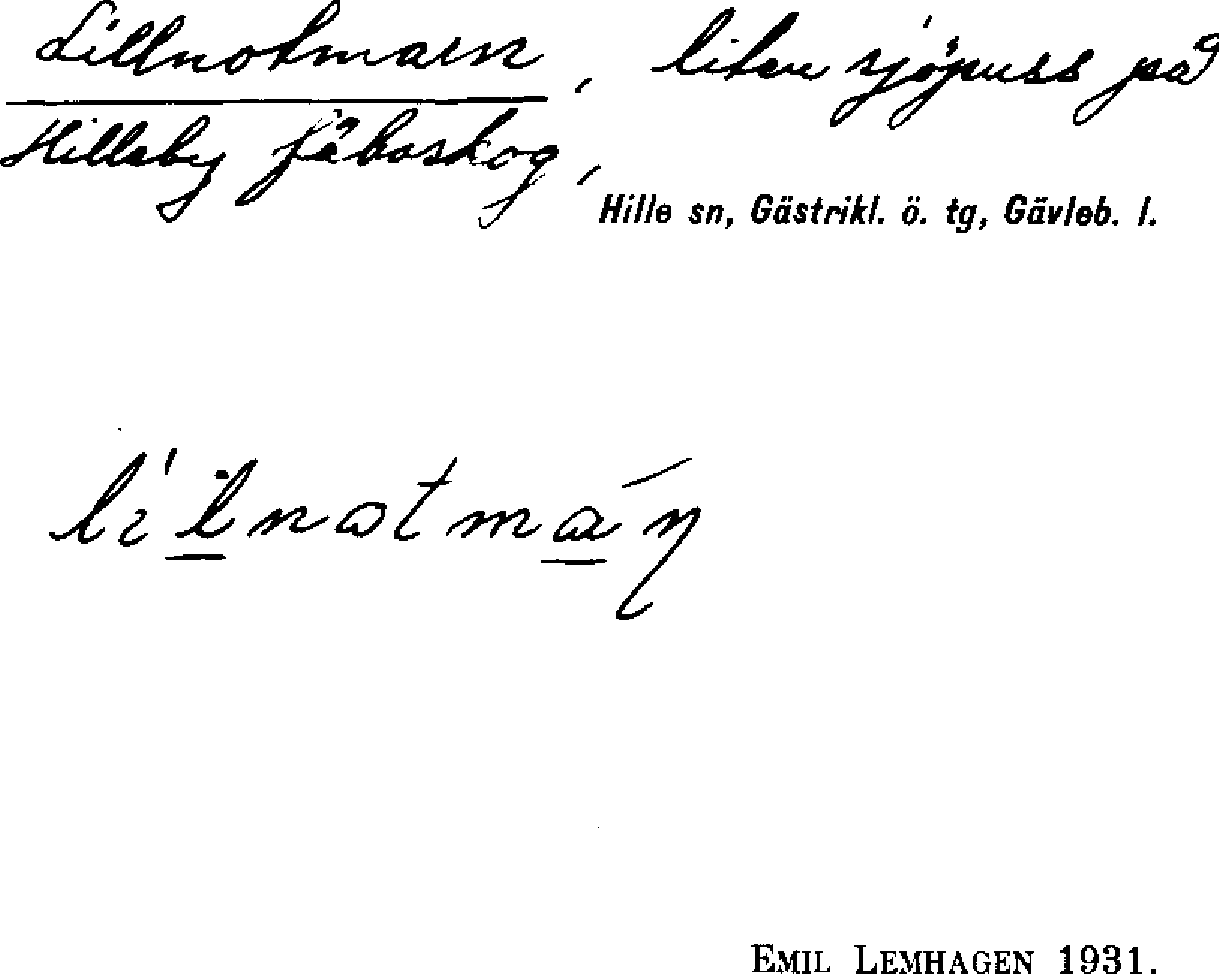 Lillnotmarn, liten sjöpuss på
Hilleby fäboskog,
Hille sn, Gästrikl. ö. tg, Gävleb. l.
EMIL LEMHAGEN 1931.